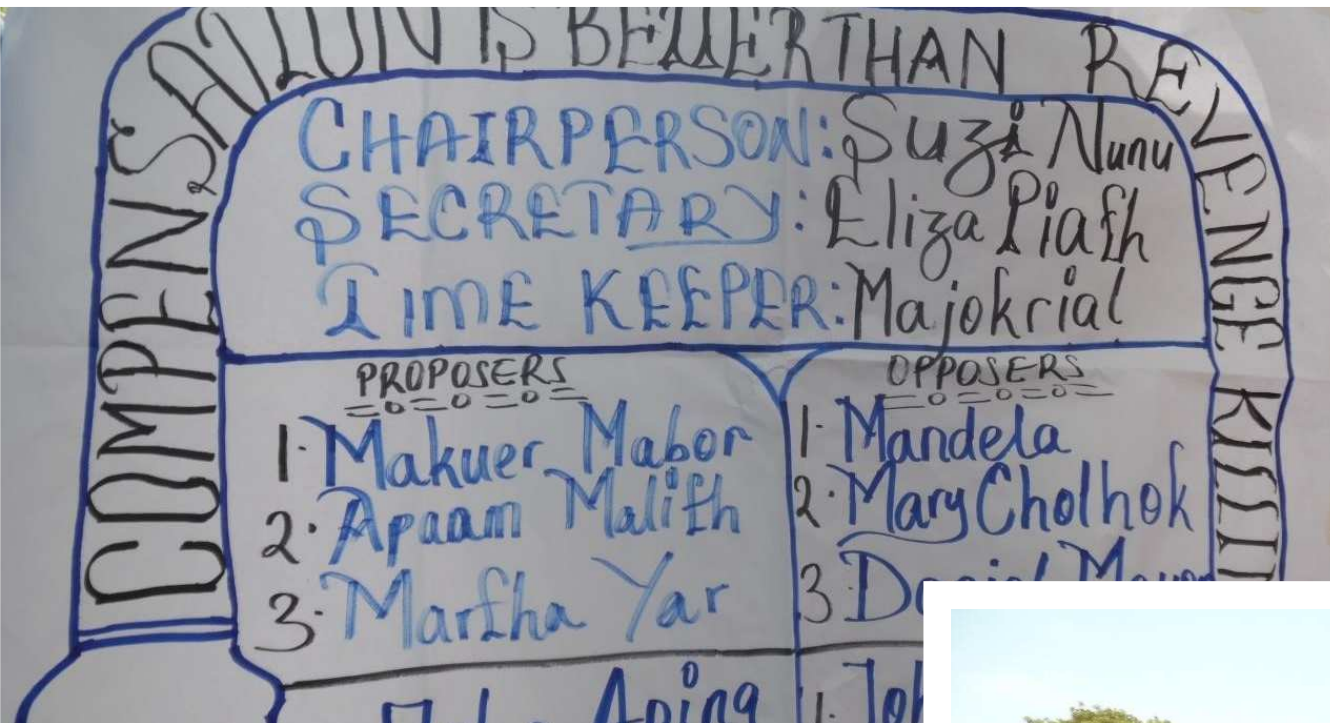 COMPENSATION IS BETTER THAN REVENGE
CHAIRPERSON: Suzi Nunu
SECRETARY: Eliza Piath
TIME KEEPER: Majokrial
PROPOSERS
1. Makuer Mabor
2. Apaam Malith
3. Martha Yar
OPPOSERS
1. Mandela
2. Mary Cholhok
3.
Aping
1.